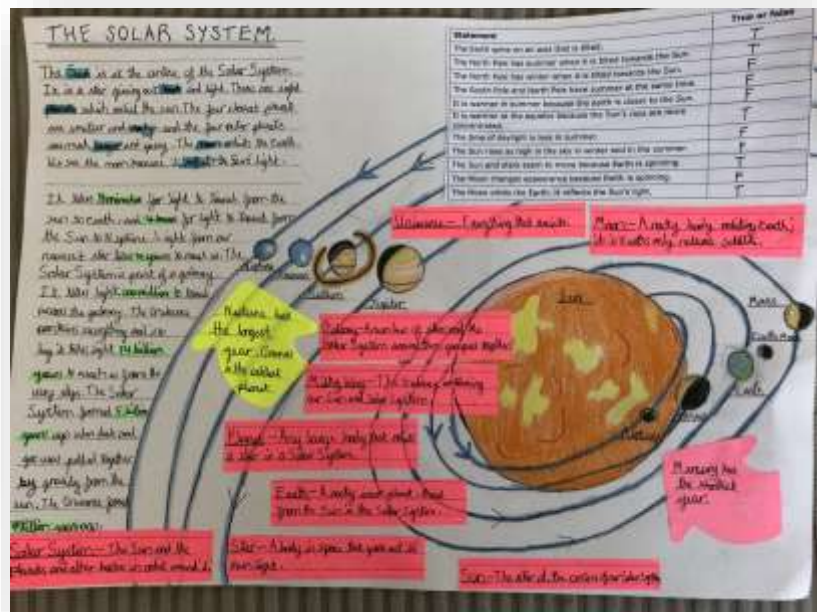 THE SOLAR SYSTEM.
The Sun is at the centre of the Solar System.
It is a star giving out and light. There are eight
which orbit the sun. The four closest planets
are smaller and and the four outer planets
are and The orbits the Earth.
We see the moon because it reflects the Sun's light.
It takes for light to travel from the
sun to earth, and for light to travel from
the Sun to Neptune. Light from our
nearest star to reach us. The
Solar System is part of a galaxy.
It takes light to travel
across the galaxy. The Universe
contains everything and
it takes light 14 billion
years to reach us from the
very edge. The Solar
System formed 5 billion
years ago when dust and
gas were pulled together
by gravity from the
sun. The Universe formed
Statement True or False
The Earth spins on an axis that is tilted. T
The North Pole has summer when it is tilted towards the Sun. T
The North Pole has winter when it is tilted towards the Sun. F
The South Pole and North Pole have summer at the same time. F
It is warmer in summer because the Earth is closer to the Sun. F
It is warmer at the equator because the Sun's rays are more T
concentrated.
The time of daylight is less in summer. F
The Sun rises as high in the sky in winter as in the summer. F
The Sun and stars seem to move because Earth is spinning. T
The Moon changes appearance because Earth is spinning. F
The Moon orbits the Earth. It reflects the Sun's light. T
Universe - Everything that exists.
Moon - A rocky body orbiting Earth;
it is Earth's only natural satellite.
Neptune
Uranus
Saturn
Jupiter
Sun
Mars
Earth's Moon
Earth
Venus
Mercury
Neptune has
the longest
year. Uranus
is the coldest
planet.
Galaxy -
Milky Way - The Galaxy containing
our Sun and Solar System.
Planet - Any large body that orbits
a star in a Solar System.
Earth - A rocky planet, third
from the Sun in the Solar System.
Mercury has
the shortest
year.
Solar System - The Sun and the
planets and other bodies in orbit around it.
Star - A body in space that gives out its
own light.
Sun - The star at the centre of our Solar System